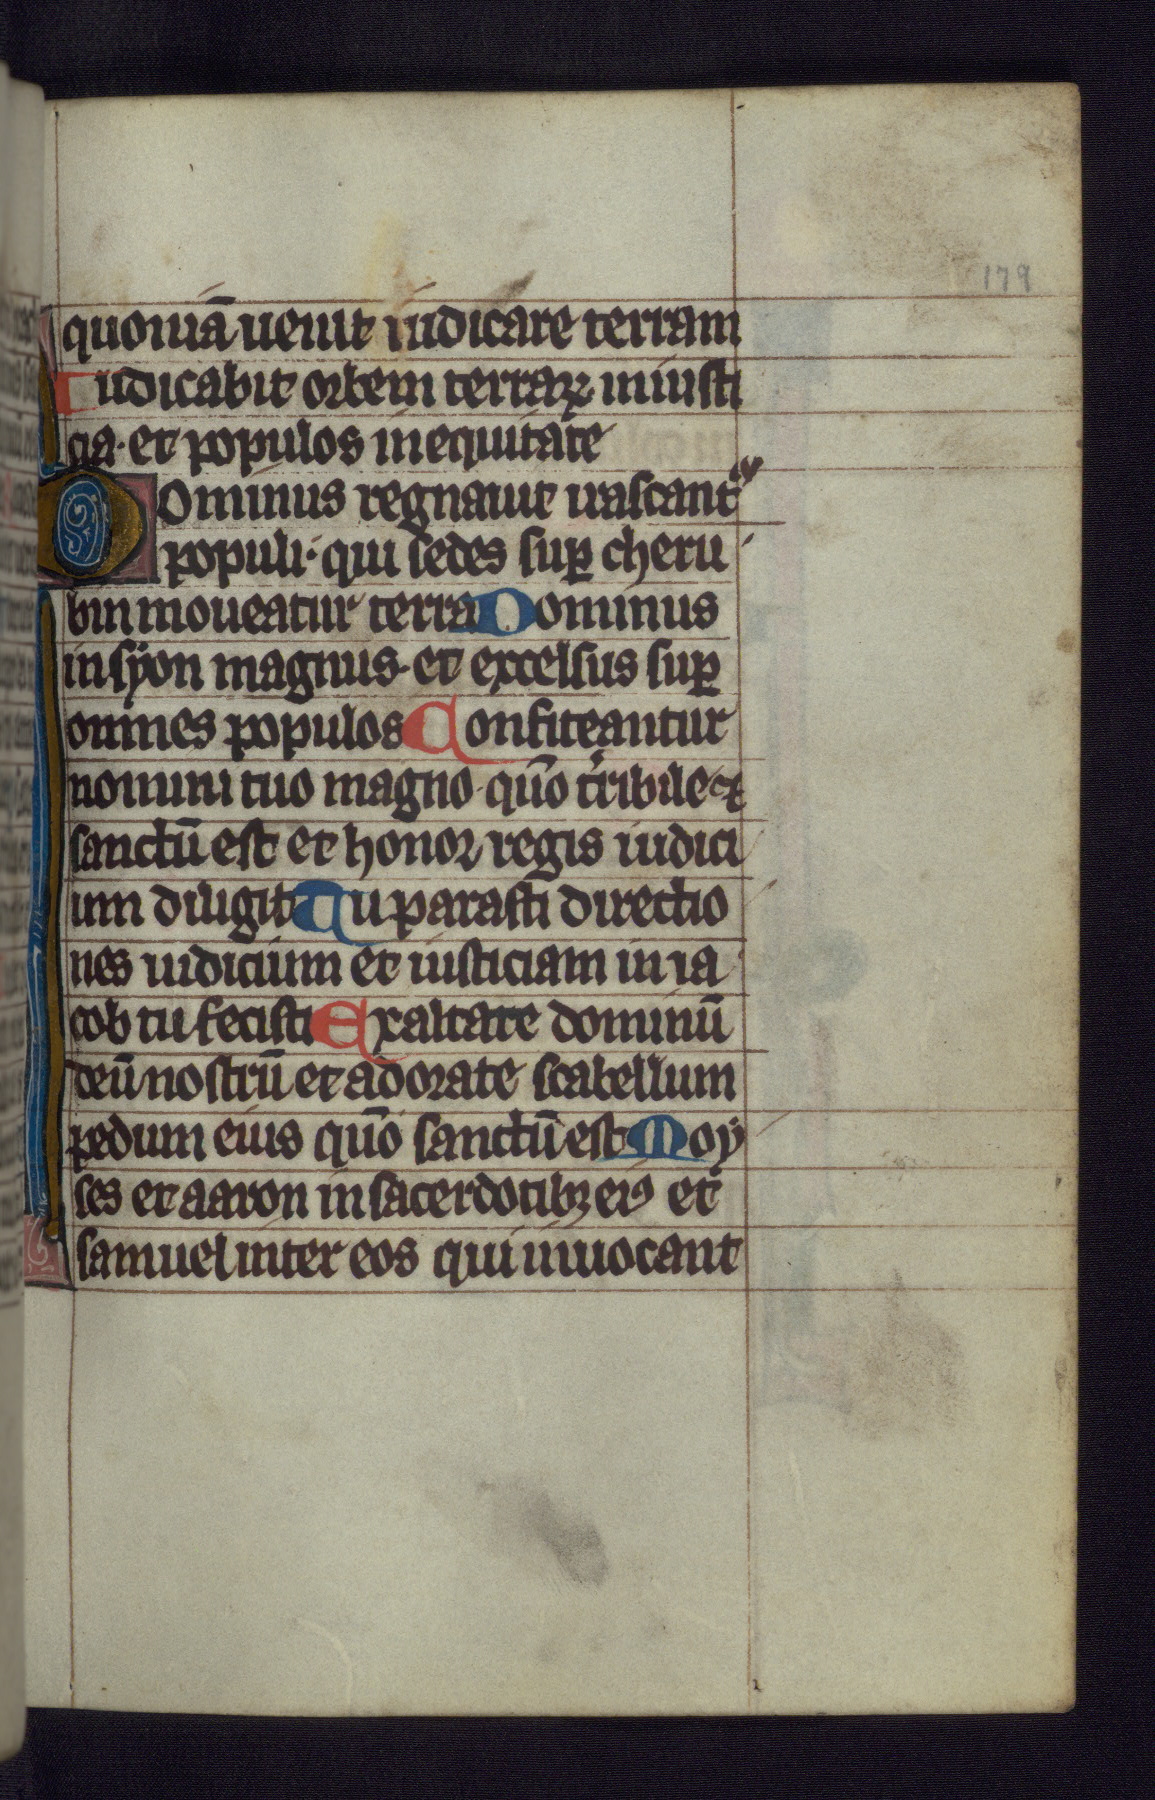 179
quoniā uenit iudicare terram
Iudicabit orbem terraꝝ in iusti
cia· et populos in equitate
Dominus regnauit irascantᷣ
populi· qui sedes suꝑ cheru
bin moueatur terra Dominus
in syon magnus· et excelsus suꝑ
omnes populos Confiteantur
nomini tuo magno· qūo t̄ribile et
sanctū est et honor regis iudici
um diligit Tu parasti directio
nes iudicium et iusticiam in ia
cob tu fecisti Exaltate dominū
deū nostrū et adorate scabellum
pedum eius qūo sanctū est Moy
ses et aaron in sacerdotibꝫ eiꝰ et
samuel inter eos qui inuocant